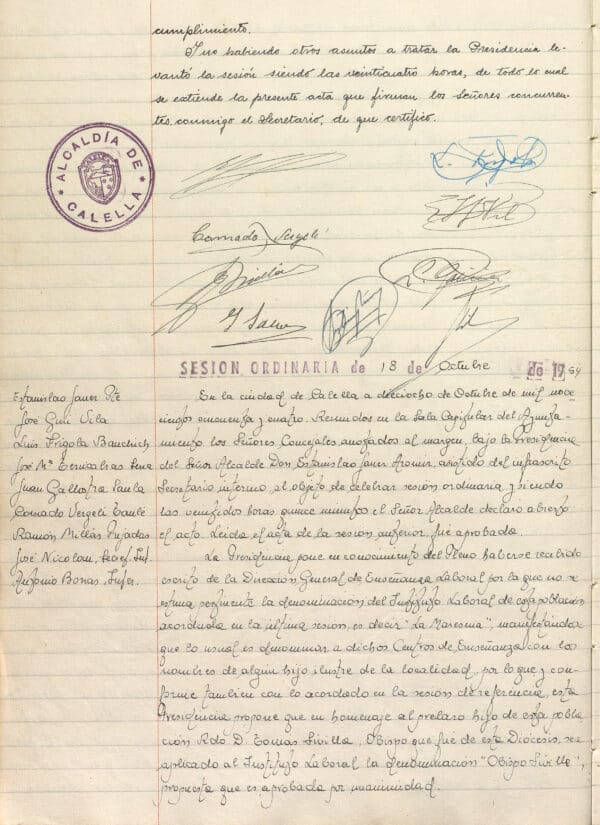 cumplimiento.
Y no habiendo otros asuntos a tratar la Presidencia le-
vantó la sesión siendo las veinticuatro horas, de todo lo cual
se extiende la presente acta que firman los Señores concurren-
tes, conmigo el Secretario, de que certifico.
ALCALDÍA DE
CALELLA
Conrado Vergelí
SESION ORDINARIA de 18 de Octubre de 1954
Estanislao Janer Pte
José Guri Vila
Luis Frigola
José Mª
Juan Gallostra Saula
Conrado Vergelí
Ramón Millás Pujadas
José Nicolau, Secret. Int.
Antonio Bonas, Inter.
En la ciudad de Calella a dieciocho de Octubre de mil nove-
cientos cincuenta y cuatro. Reunidos en la Sala Capitular del Ayunta-
miento los Señores Concejales anotados al margen, bajo la Presidencia
del Señor Alcalde Don Estanislao Janer, asistido del infrascrito
Secretario interino, al objeto de celebrar sesión ordinaria y siendo
las veintidos horas quince minutos el Señor Alcalde declaró abierto
el acto. Leida el acta de la sesión anterior fué aprobada.
La Presidencia pone en conocimiento del Pleno haberse recibido
escrito de la Dirección General de Enseñanza Laboral por la que no se
estima pertinente la denominación del Instituto Laboral de esta población
acordada en la última sesión, es decir "La Maresma", manifestando
que lo usual es denominar a dichos Centros de Enseñanza con los
nombres de algún hijo ilustre de la localidad, por lo que y con-
forme tambien con lo acordado en la sesión de referencia, esta
Presidencia propone que en homenaje al preclaro hijo de esta pobla-
ción Rdo D. Tomas Sivilla, Obispo que fué de esta Diócesis, sea
aplicado al Instituto Laboral la denominación "Obispo Sivilla",
propuesta que es aprobada por unanimidad.